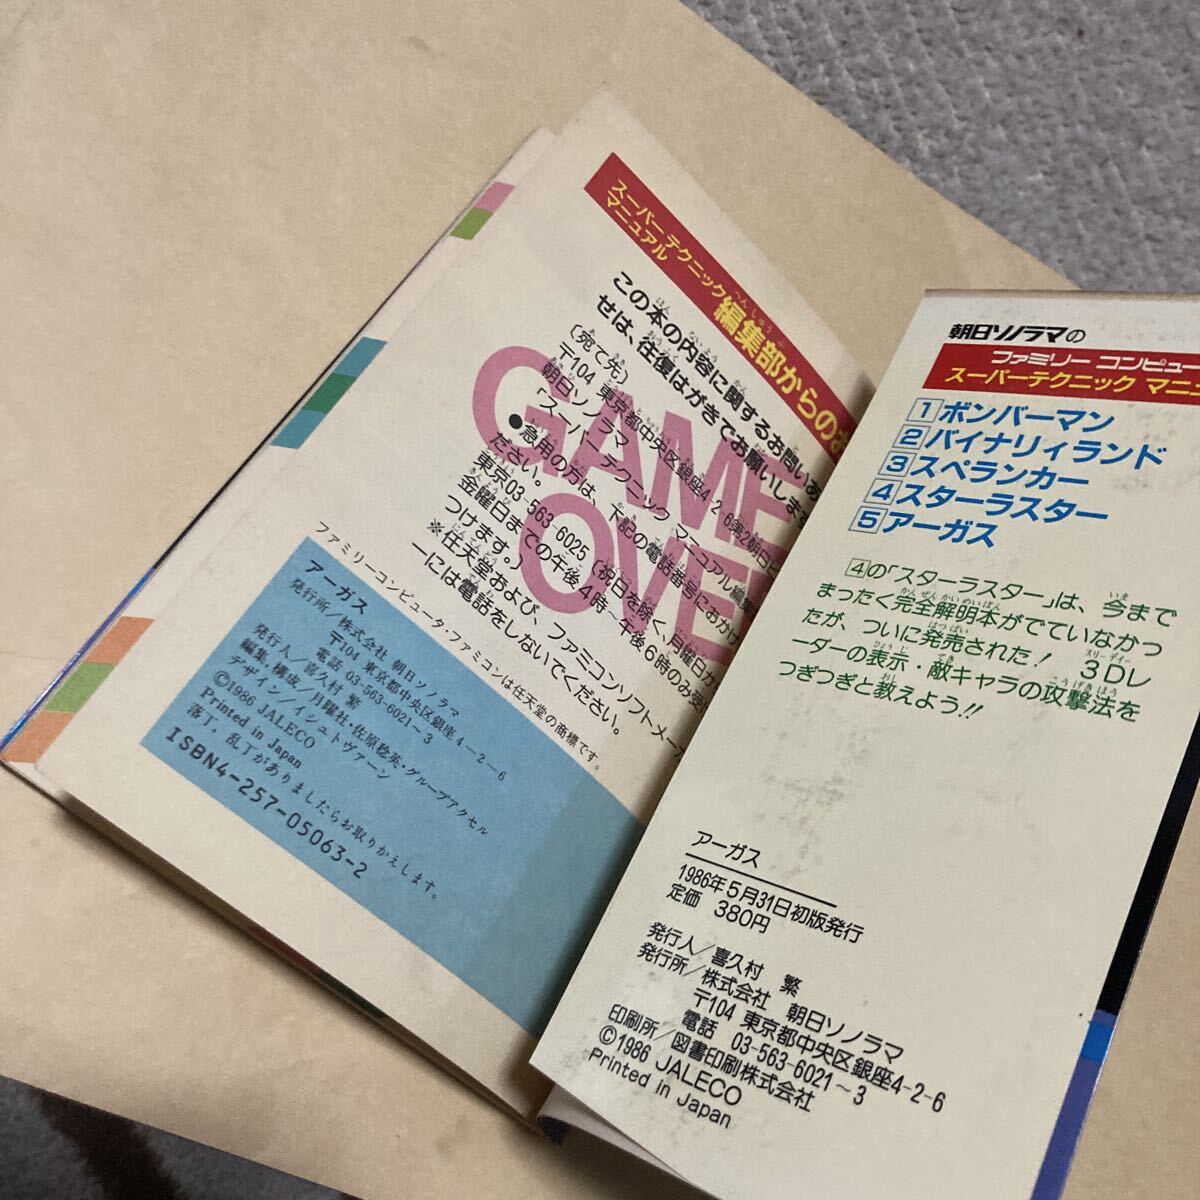 スーパーテクニック
マニュアル
編集部からのお
へんしゅうぶ
この本の内容に関するお問いあ
せは、往復はがきでお願いします
(宛て先)
〒104 東京都中央区銀座4-2-6第2朝日ビ
朝日ソノラマ
「スーパーテクニック マニュアル編集
●急用の方は、下記の電話番号におかけ
ださい。
東京03-563-6025(祝日を除く、月曜日か
金曜日までの午後4時〜午後6時のみ受け
つけます。)
※任天堂および、ファミコンソフトメーカ
ーには電話をしないでください。
GAME
OVE
ファミリーコンピュータ・ファミコンは任天堂の商標です。
アーガス
発行所/株式会社 朝日ソノラマ
〒104 東京都中央区銀座4-2-6
電話 03-563-6021〜3
発行人/喜久村 繁
編集,構成/月曜社・佐原稔英・グループアクセル
デザイン/イシュトヴァーン
©1986 JALECO
Printed in Japan
落丁,乱丁がありましたらお取りかえします。
ISBN4-257-05063-2
朝日ソノラマの
ファミリー コンピュー
スーパーテクニック マニュ
1 ボンバーマン
2 バイナリィランド
3 スペランカー
4 スターラスター
5 アーガス
4の「スターラスター」は、今まで
まったく完全解明本がでていなかっ
たが、ついに発売された! 3Dレ
ーダーの表示・敵キャラの攻撃法を
つぎつぎと教えよう!!
アーガス
1986年5月31日初版発行
定価 380円
発行人/喜久村 繁
発行所/株式会社 朝日ソノラマ
〒104 東京都中央区銀座4-2-6
電話 03-563-6021〜3
印刷所/図書印刷株式会社
©1986 JALECO
Printed in Japan